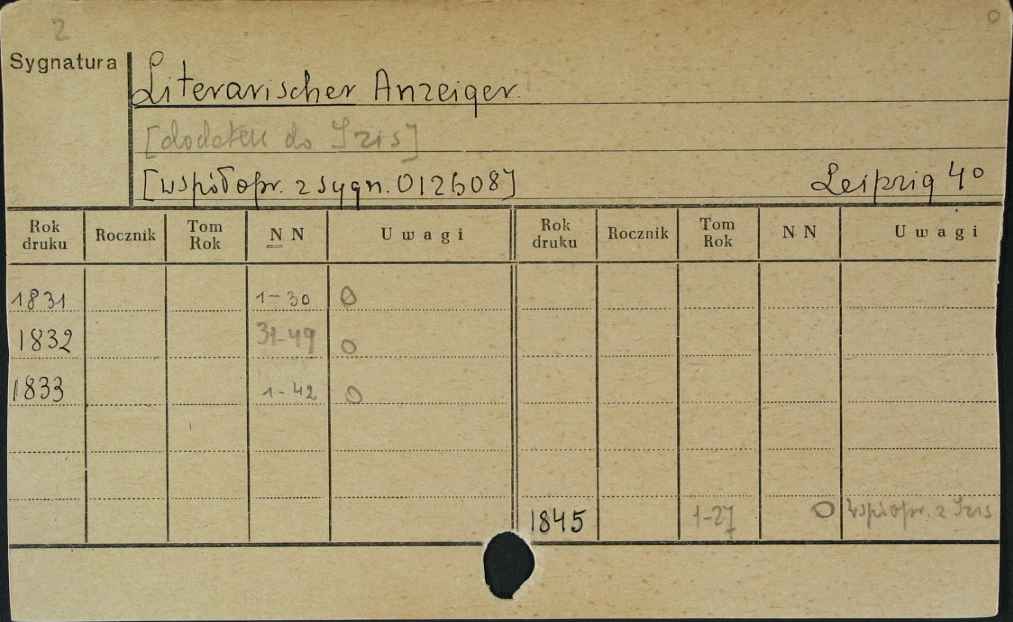 2 0
Sygnatura
Literarischer Anzeiger
[dodatek do Izis]
[współopr. z sygn. 012608] Leipzig 4⁰
Rok druku Rocznik Tom Rok N N Uwagi Rok druku Rocznik Tom Rok N N Uwagi
1831 1-30 0
1832 31-49 0
1833 1-42 0
1845 1-27 0 współopr. z Izis